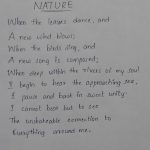 NATURE
When the leaves dance, and
A new wind blows;
When the birds sing, and
A new song is composed;
When deep within the rivers of my soul
I begin to hear the approaching sea,
I pause and bask in sweet unity.
I cannot bear but to see
The unshakeable connection to
Everything around me.